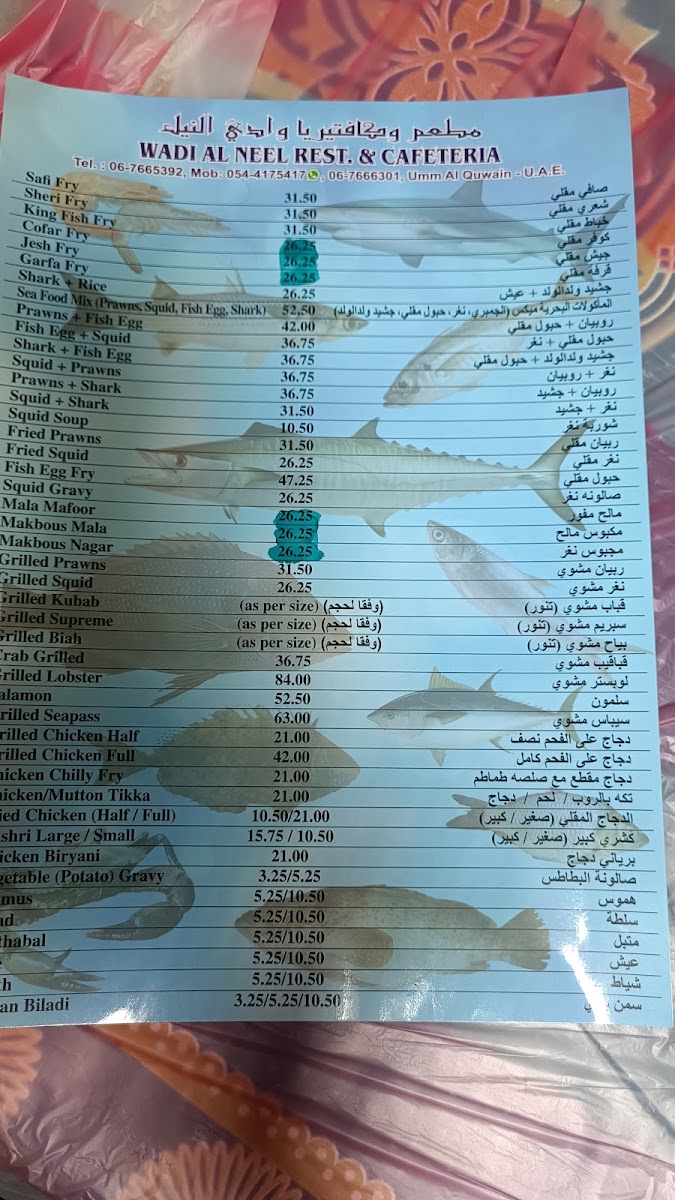 مطعم وكافتيريا وادي النيل
WADI AL NEEL REST. & CAFETERIA
Tel. : 06-7665392, Mob: 054-4175417, 06-7666301, Umm Al Quwain - U.A.E.
Safi Fry 31.50 صافي مقلي
Sheri Fry 31.50 شعري مقلي
King Fish Fry 31.50 خباط مقلي
Cofar Fry 26.25 كوفر مقلي
Jesh Fry 26.25 جيش مقلي
Garfa Fry 26.25 قرفة مقلي
Shark + Rice 26.25 جشيد ولدالولد + عيش
Sea Food Mix (Prawns, Squid, Fish Egg, Shark) 52.50 المأكولات البحرية ميكس (الجمبري، نغر، حبول مقلي، جشيد ولدالولد)
Prawns + Fish Egg 42.00 روبيان + حبول مقلي
Fish Egg + Squid 36.75 حبول مقلي + نغر
Shark + Fish Egg 36.75 جشيد ولدالولد + حبول مقلي
Squid + Prawns 36.75 نغر + روبيان
Prawns + Shark 36.75 روبيان + جشيد
Squid + Shark 31.50 نغر + جشيد
Squid Soup 10.50 شوربة نغر
Fried Prawns 31.50 ربيان مقلي
Fried Squid 26.25 نغر مقلي
Fish Egg Fry 47.25 حبول مقلي
Squid Gravy 26.25 صالونه نغر
Mala Mafoor 26.25 مالح مفور
Makbous Mala 26.25 مكبوس مالح
Makbous Nagar 26.25 مجبوس نغر
Grilled Prawns 31.50 ربيان مشوي
Grilled Squid 26.25 نغر مشوي
Grilled Kubab (as per size) (وفقا لحجم) قباب مشوي (تنور)
Grilled Supreme (as per size) (وفقا لحجم) سبريم مشوي (تنور)
Grilled Biah (as per size) (وفقا لحجم) بياح مشوي (تنور)
Crab Grilled 36.75 قباقيب مشوي
rilled Lobster 84.00 لوبستر مشوي
alamon 52.50 سلمون
rilled Seapass 63.00 سيباس مشوي
rilled Chicken Half 21.00 دجاج على الفحم نصف
rilled Chicken Full 42.00 دجاج على الفحم كامل
hicken Chilly Fry 21.00 دجاج مقطع مع صلصه طماطم
hicken/Mutton Tikka 21.00 تكه بالروب / لحم / دجاج
ied Chicken (Half / Full) 10.50/21.00 الدجاج المقلي (صغير / كبير)
shri Large / Small 15.75 / 10.50 كشري كبير (صغير / كبير)
icken Biryani 21.00 برياني دجاج
getable (Potato) Gravy 3.25/5.25 صالونة البطاطس
mus 5.25/10.50 هموس
ad 5.25/10.50 سلطة
thabal 5.25/10.50 متبل
5.25/10.50 عيش
th 5.25/10.50 شباط
an Biladi 3.25/5.25/10.50 سمن